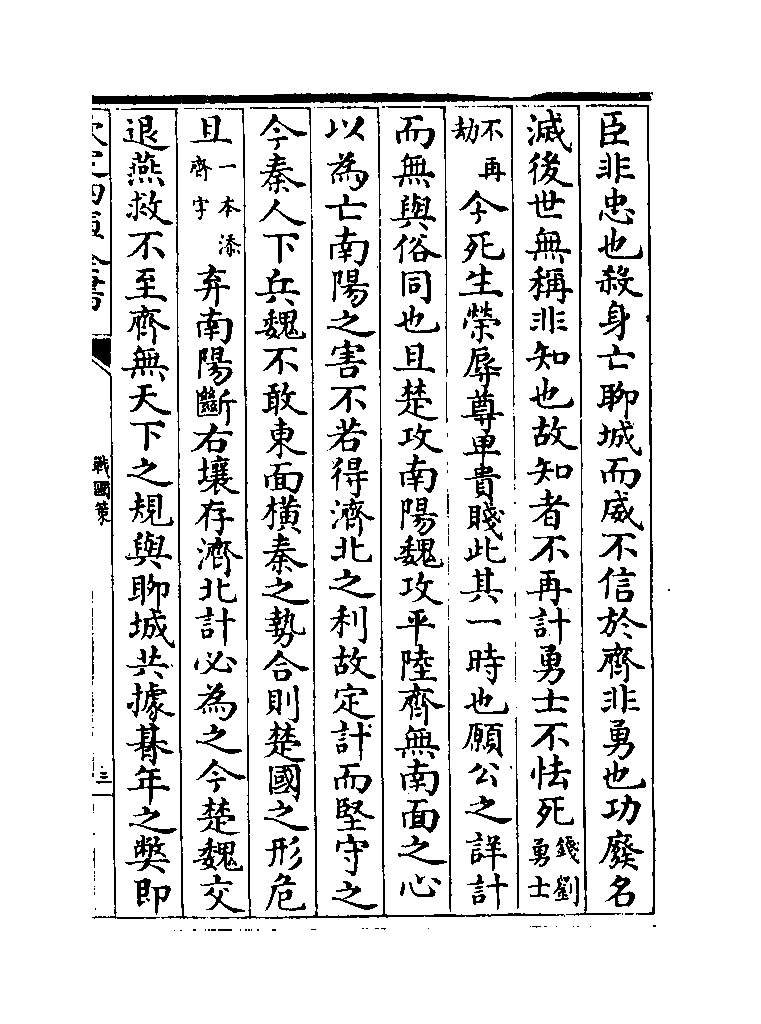 臣非忠也殺身亡聊城而威不信於齊非勇也功廢名
滅後世無稱非知也故知者不再計勇士不怯死錢劉勇士
不再劫今死生榮辱尊卑貴賤此其一時也願公之詳計
而無與俗同也且楚攻南陽魏攻平陸齊無南面之心
以為亡南陽之害不若得濟北之利故定計而堅守之
今秦人下兵魏不敢東面橫秦之勢合則楚國之形危
且一本添齊字弃南陽斷右壤存濟北計必為之今楚魏交
退燕救不至齊無天下之規與聊城共據朞年之弊即
戰國策
三